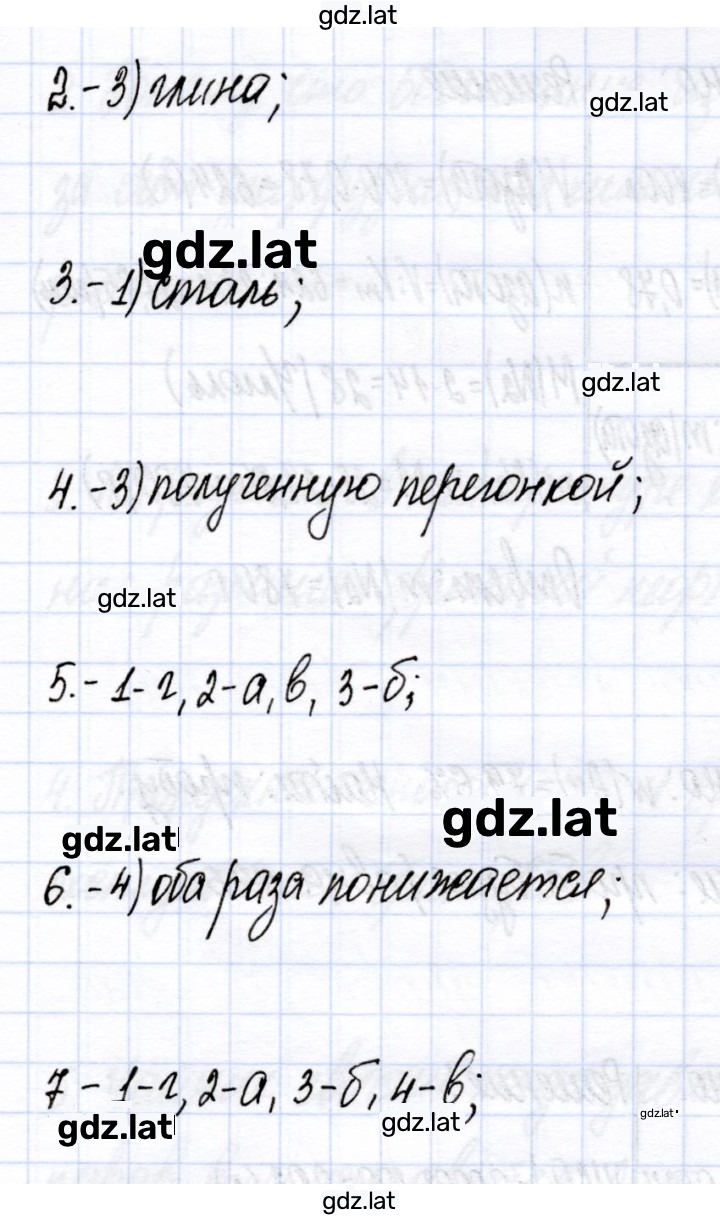 gdz.lat
2.-3) глина;
gdz.lat
gdz.lat
3.-1) сталь;
gdz.lat
4.-3) полученную перегонкой;
gdz.lat
5.- 1-г, 2-а, в, 3-б;
gdz.lat
gdz.lat
6.-4) оба раза понижается;
7 - 1-г, 2-а, 3-б, 4-в;
gdz.lat
gdz.lat
gdz.lat
gdz.lat